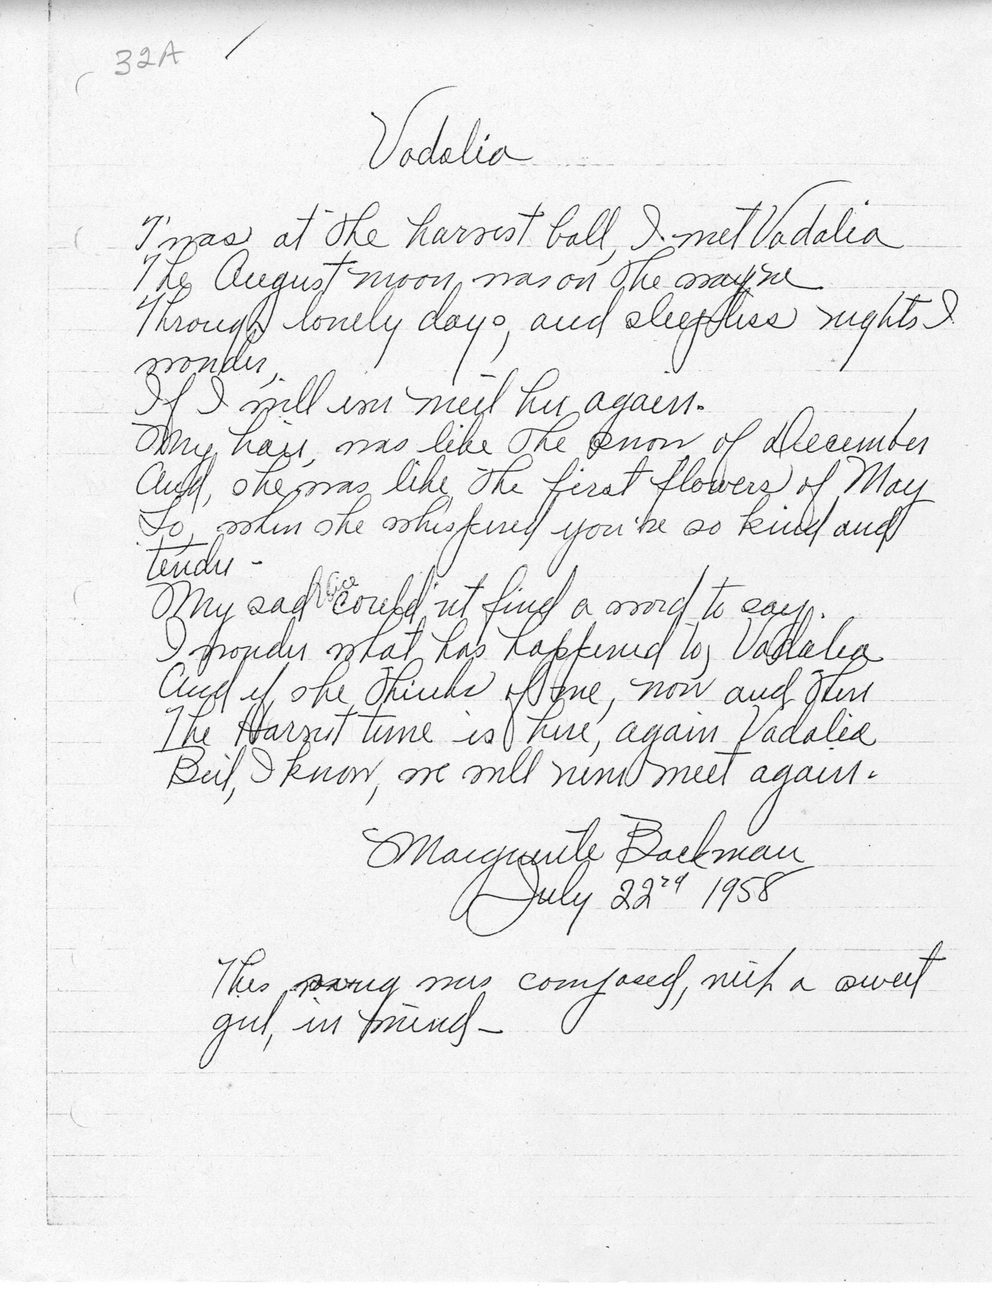 32A
Vadalia
T'was at the harvest ball, I met Vadalia
The August moon was on the wayne
Through lonely days, and sleepless nights I
wonder,
If I will ever meet her again.
My hair, was like the snow of December
And, she was like the first flowers of May
So, when she whispered you're so kind and
tender -
My sad could'nt find a word to say.
I wonder what has happened to, Vadalia
And if, she thinks of me, now and then
The Harvest time is here, again Vadalia
But, I know, we will never meet again.
Marguerite Backman
July 22nd 1958
This song was composed, with a sweet
girl, in mind -